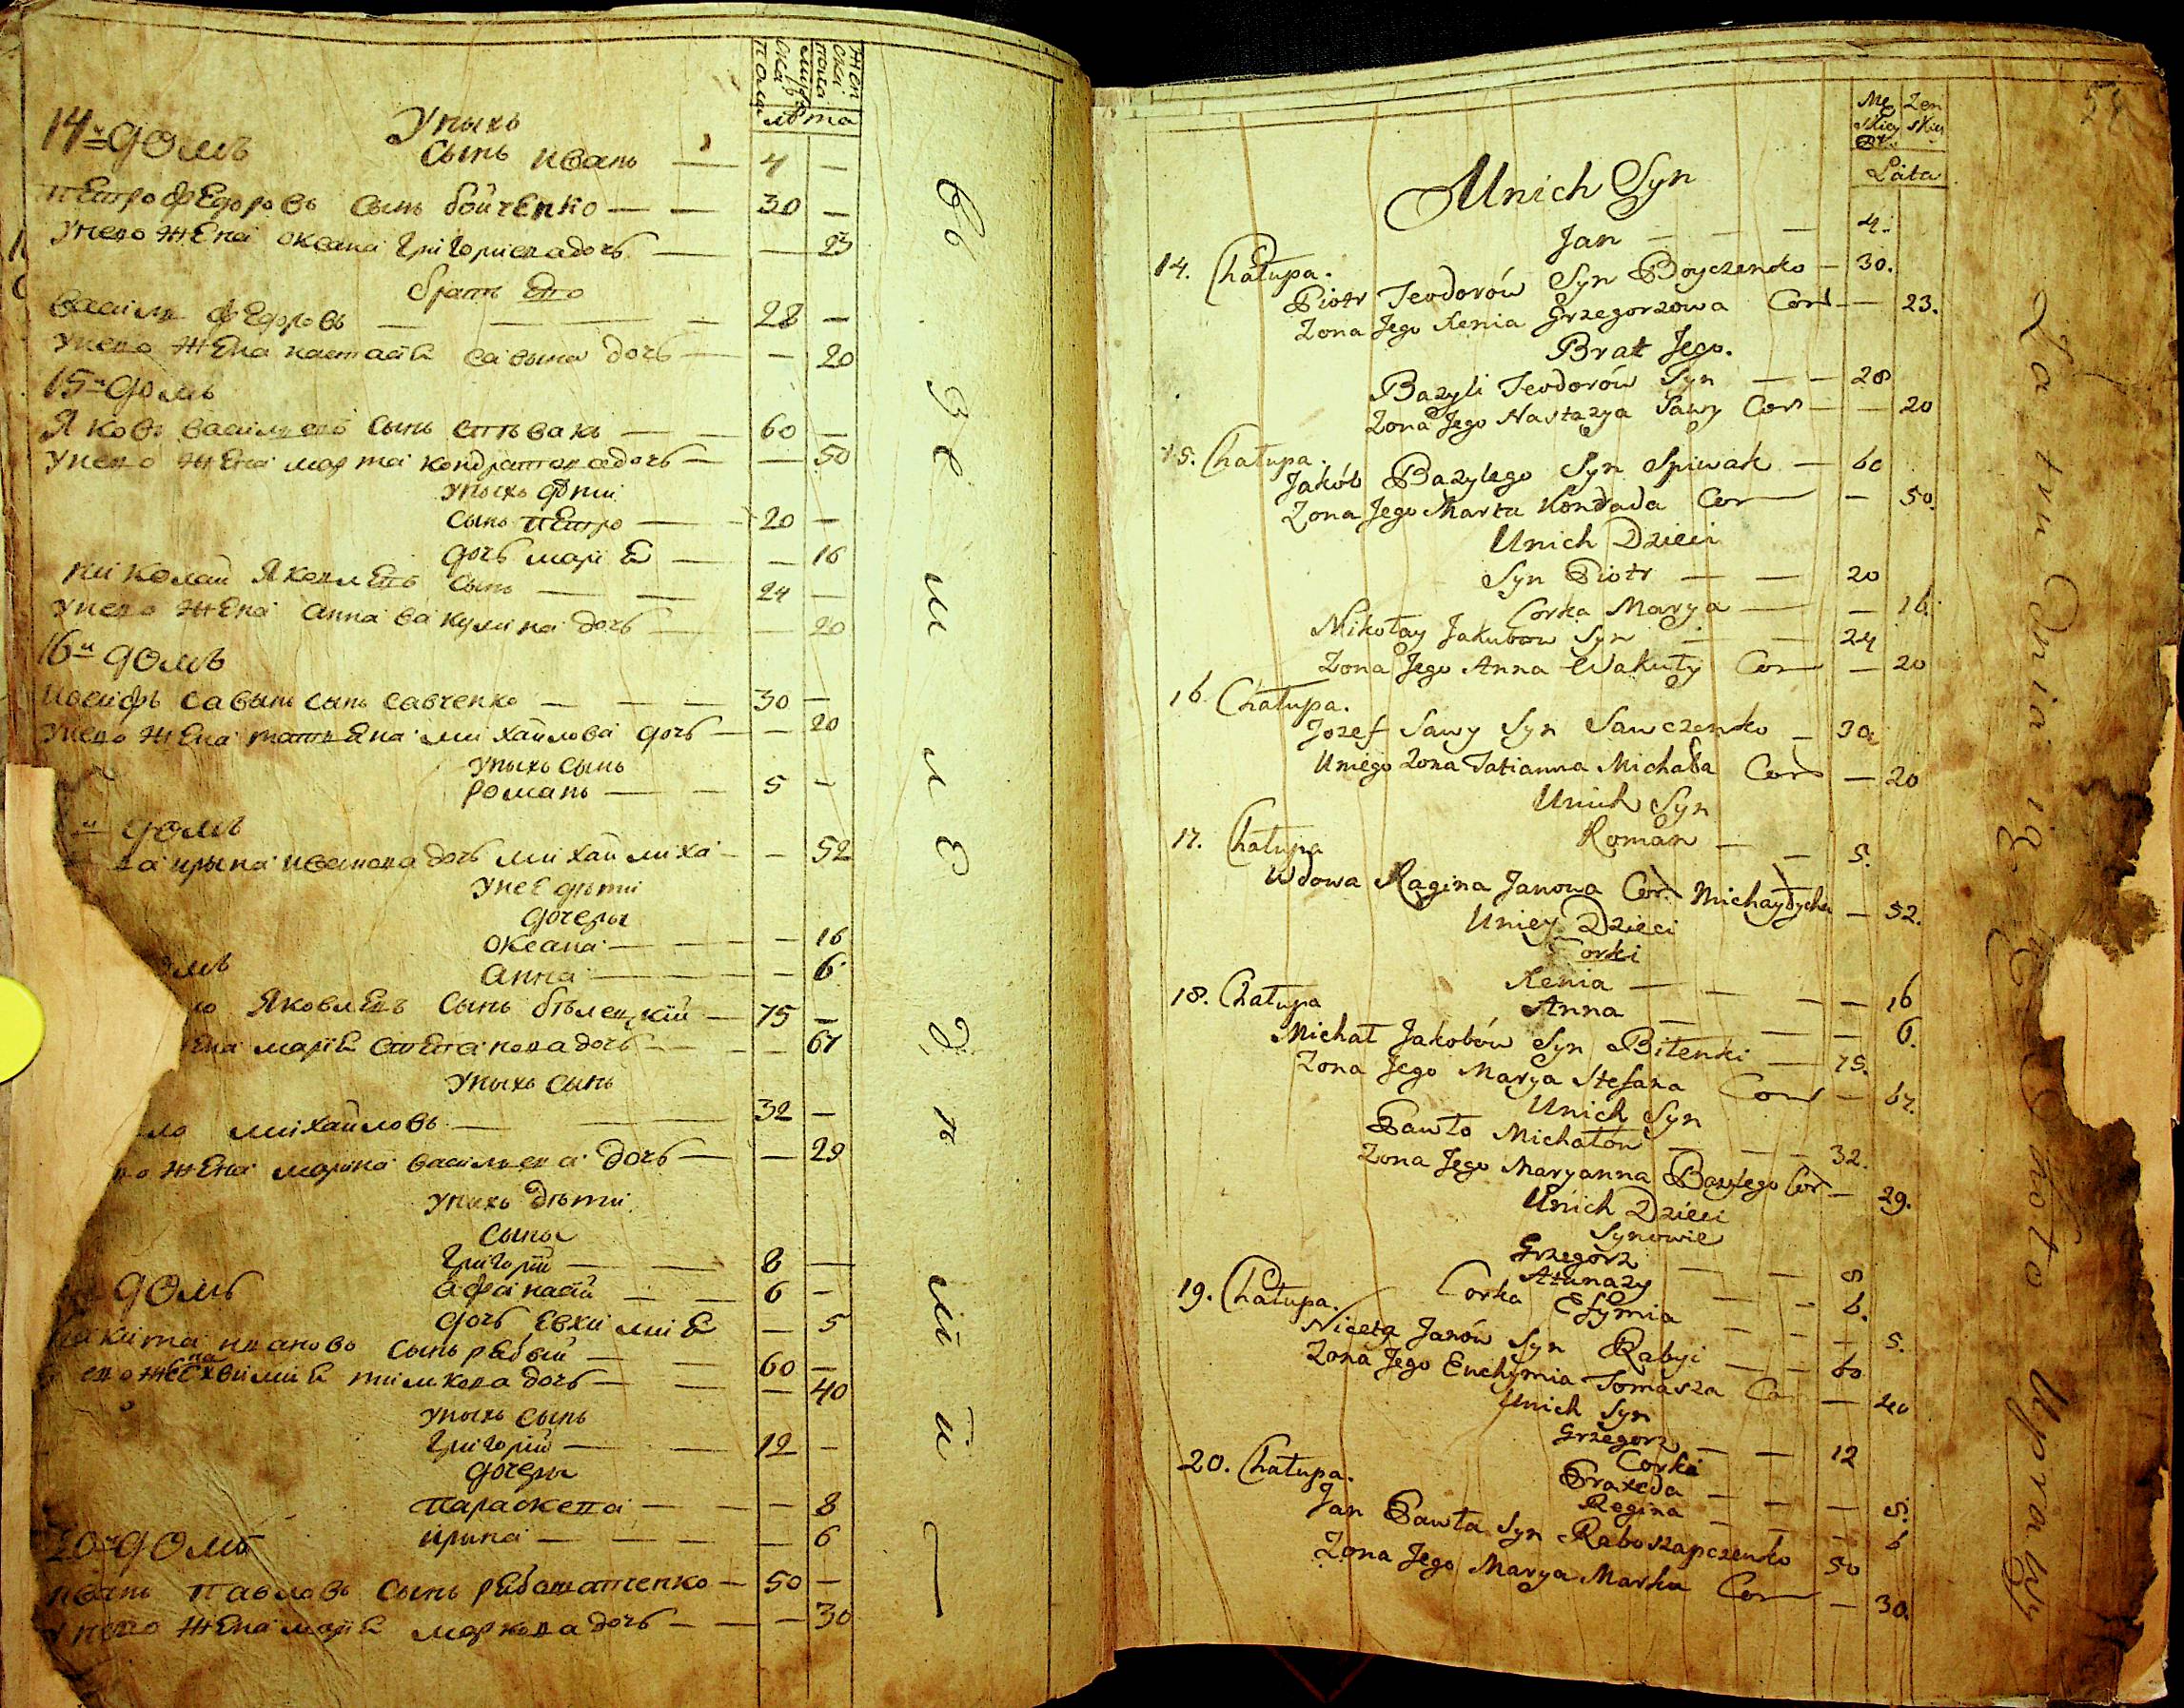 мужеска пола
женска пола
лѣта
Унихъ
сынъ иванъ — 4 —
14й домъ
петро федоровъ сынъ бойченко — — 30 —
унего жена оксана григориева дочь — — 23
братъ его
василь федоровъ — — — — 28 —
унего жена настасия савына дочь — — 20
15й домъ
Яковъ василиевъ сынъ спѣвакъ — — 60 —
унего жена марта кондратова дочь — — 50
унихъ дѣти
сынъ петро — — 20 —
дочь мария — — 16
николай Яковлевъ сынъ — — 24 —
унего жена анна вакулина дочь — — 20
16й домъ
иосифъ савынъ сынъ савченко — — — 30 —
унего жена татяна михайлова дочь — — 20
унихъ сынъ
романъ — — 5 —
домъ
ва ирына иванова дочь михайлиха — — 52
унее дѣти
дочеры
оксана — — — — 16
анна — — — — 6
омъ
ло Яковлевъ сынъ бѣлецкий — 75 —
ена мария степанова дочь — — — 67
унихъ сынъ
ло михайловъ — — 32 —
го жена марина василиева дочь — — 29
унихъ дѣти
сыны
григорий — — 8 —
афанасий — — 6 —
дочь евхимия — 5
домъ
никита ивановъ сынъ рябый — — 60 —
его жена евхимия тимкова дочь — — — 40
унихъ сынъ
григорий — — 12 —
дочеры
параскева — — — 8
ирына — — — — 6
20й домъ
иванъ павловъ сынъ рябошапченко — 50 —
унего жена мария маркова дочь — — — 30
Męskiey
Żenskiey
Lata
Unich Syn
Jan — — — 4.
14. Chałupa.
Piotr Teodorów Syn Boyczenko — 30.
Zona Jego Xenia Grzegorzowa Cor — 23.
Brat Jego.
Bazyli Teodorów Syn — — 28
Zona Jego Nastazya Sawy Cor — — 20
15. Chałupa.
Jakób Bazylego Syn Spiwak — 60
Zona Jego Marta Kondrada Cor — 50.
Unich Dzieci
Syn Piotr — — 20
Corka Marya — — 16.
Mikołay Jakubow Syn — — 24
Zona Jego Anna Wakuły Cor — 20
16 Chałupa.
Jozef Sawy Syn Sawczenko — 30
Uniego Zona Tatianna Michała Cor — 20
Unich Syn
Roman — — 5.
17. Chałupa
Wdowa Ragina Janowa Cor Michayłycha — 52.
Uniey Dzieci
Corki
Xenia — — — — 16
Anna — — — 6.
18. Chałupa
Michał Jakobów Syn Bilenki — 75.
Zona Jego Marya Stefana Cor — 67.
Unich Syn
Pawło Michałów — — — 32.
Zona Jego Maryanna Bazylego Cor — 29.
Unich Dzieci
Synowie
Grzegorz — — 8
Atanazy — — 6.
Corka Efymia — — — 5.
19. Chałupa.
Niceta Janów Syn Rabyi — — 60
Zona Jego Euchymia Tomasza Co — 40
Unich Syn
Grzegorz — — 12
Corki
Praxeda — — — 8.
Regina — — — 6
20. Chałupa.
Jan Pawła Syn Raboszapczenko 50
Zona Jego Marya Marka Cor — 30.